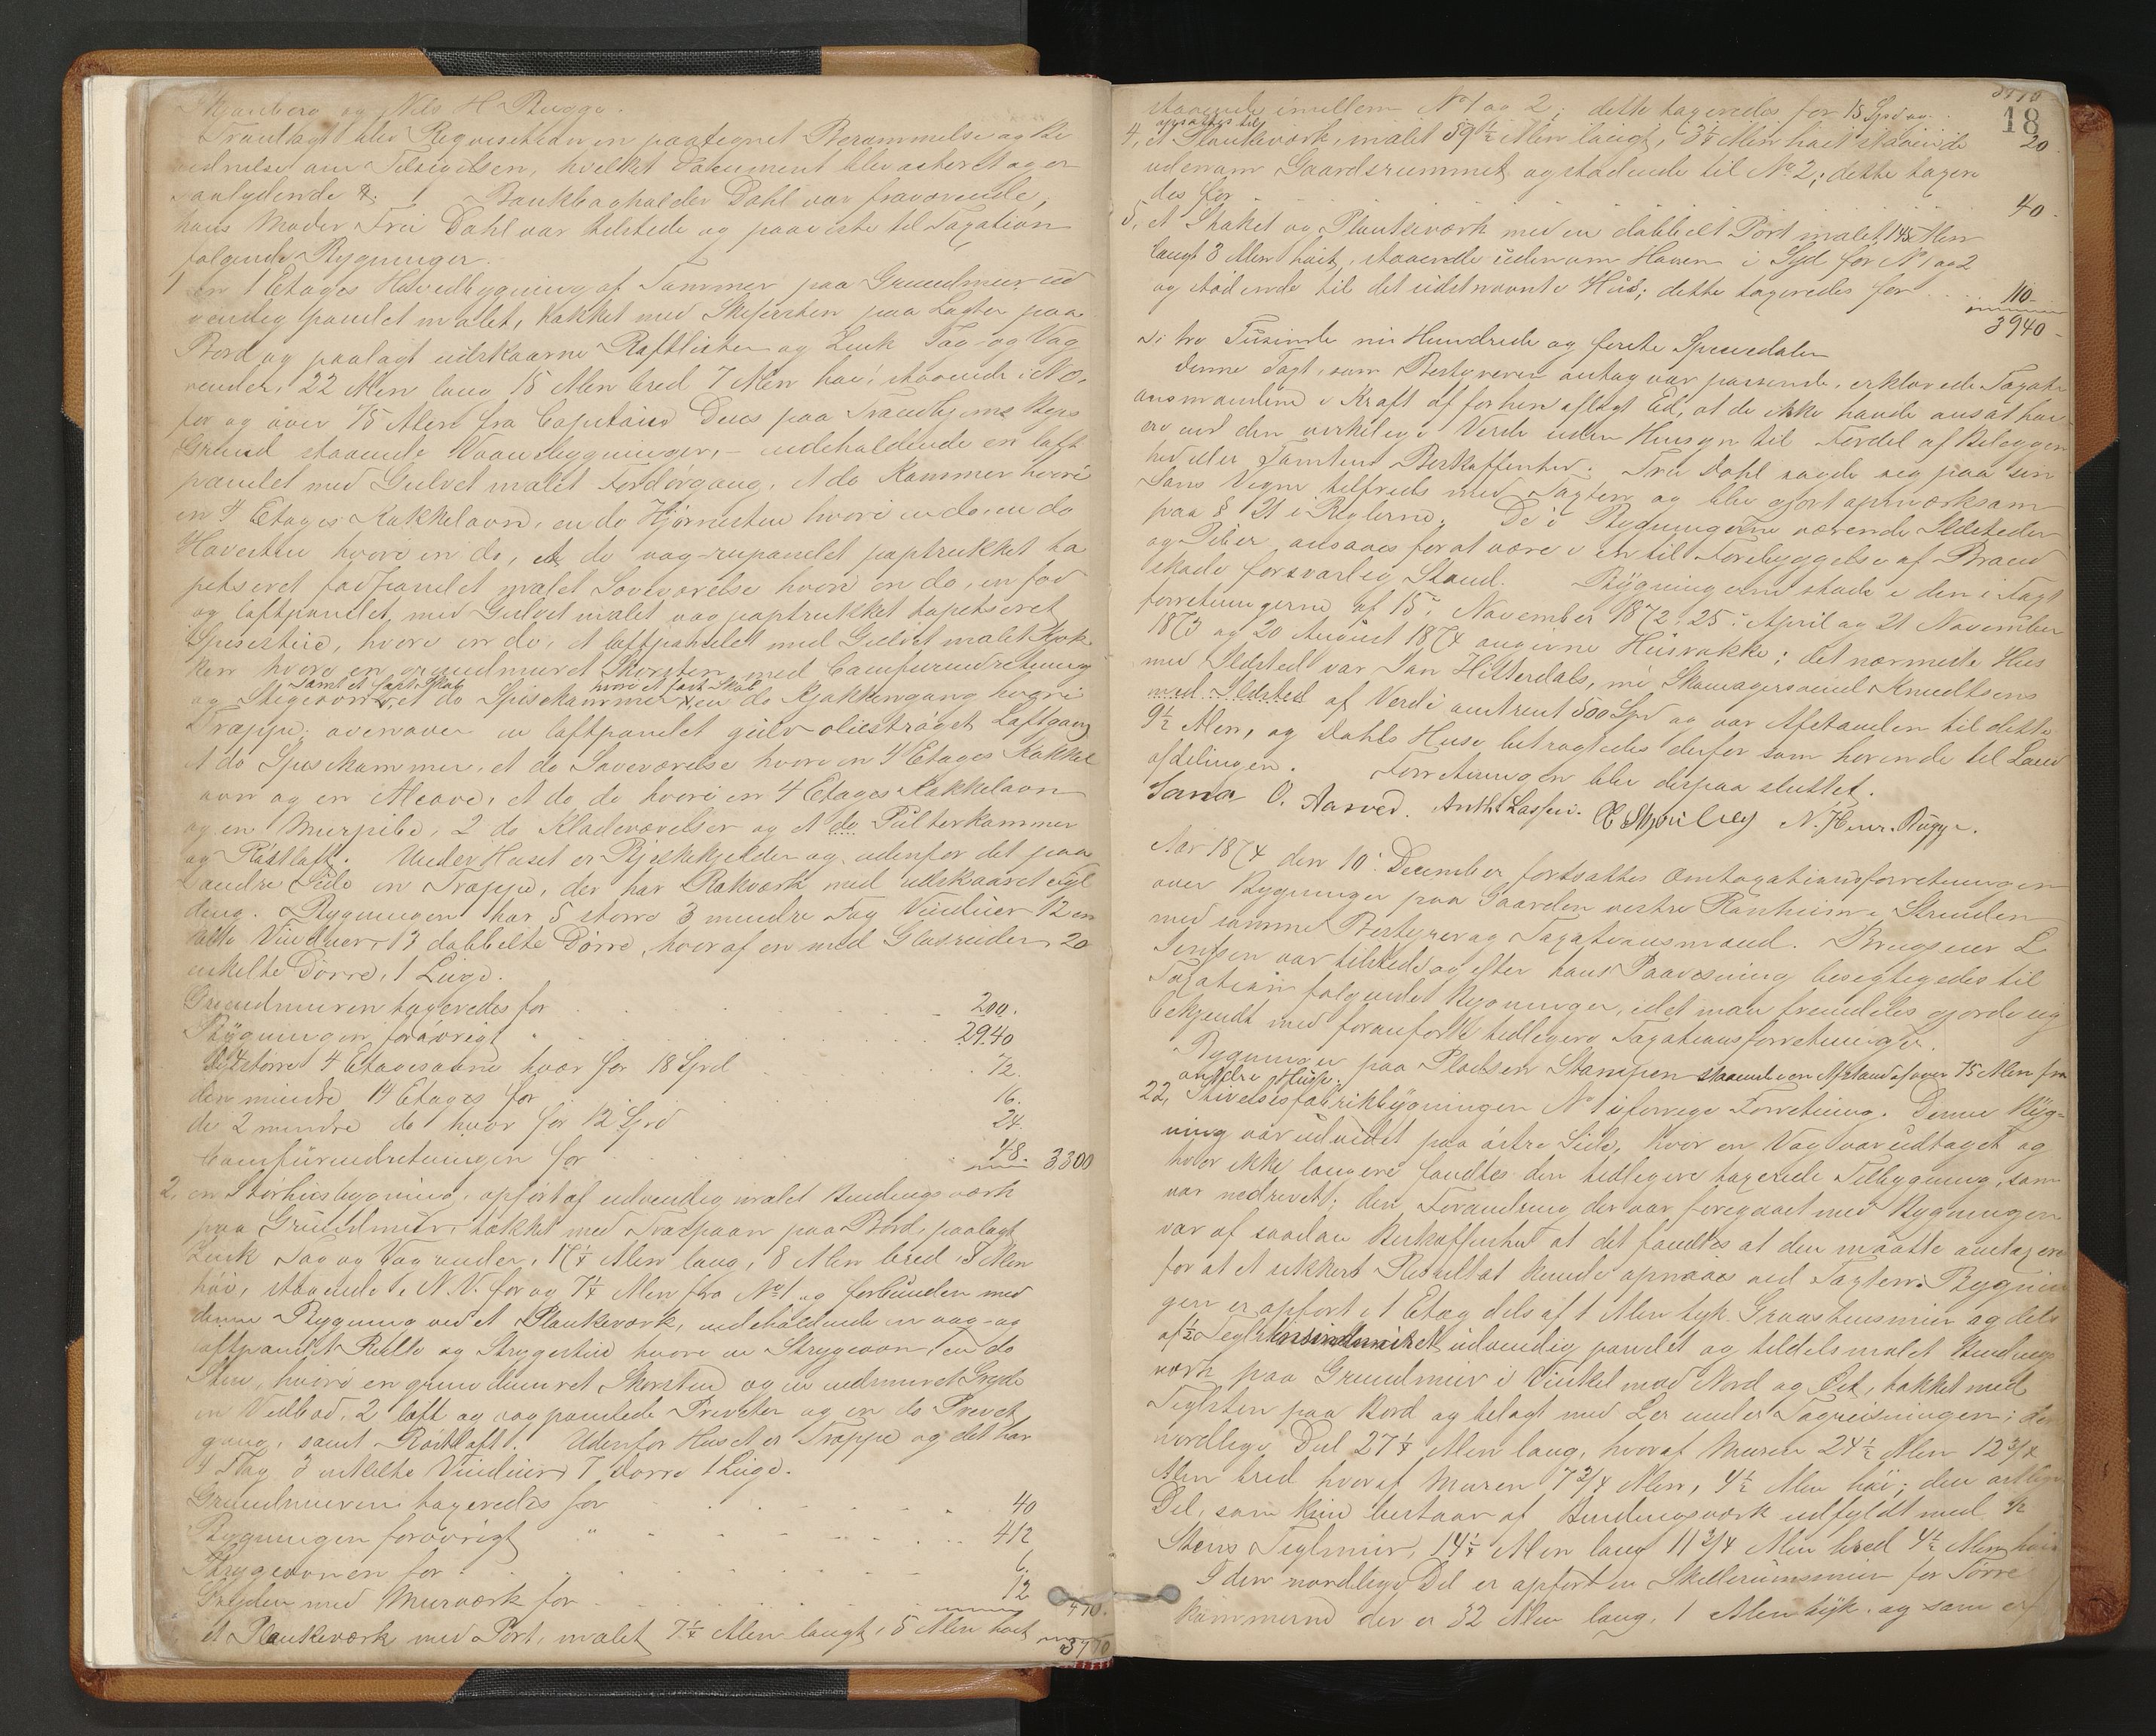 og Nils H Bugge.
Fremlagt blev Requisitionen paategnet Berammelse og Be
om Tilsigelsen, hvilket Document blev acteret og er
saalydende &. 1 Bankbogholder Dahl var fraværende,
hans Moder Fru Dahl var tilstede og paaviste til Taxation
følgende Bygninger.
1 en 1 Etages Hovedbygning af Tømmer paa Grundmuur ud
vendig panelet malet, takket med Skifersten paa Lægter paa
Bord og paalagt udskaarne Raftlister og Zink Tag- og Vag
render, 22 Alen lang 15 Alen bred 7 Alen høi, staaende i N.O.
for og over 75 Alen fra Capitain Dues paa Trondhjems Byes
Grund staaende Vaansbygninger, - indeholdende en loft
panelet med Gulvet malet Fordørgang, et do Kammer hvori
en 4 Etages Kakkelovn, en do Hjørnestue hvori en do, en do
Havestue hvori en do, et do væg-
panelet malet Soveværelse hvori en do, en
og loftpanelet med Gulvet malet væg paptrukket tapetseret
Spisestue, hvori en do, et loftpanelet med Gulvet malet Kjøk-
ken hvori en grundmuret Skorsten med Comfurindretning
samt et fast Skab hvori et fast Skab
og Stegeovn, et do Spisekammer en do Kjøkkengang hvori
Trappe; ovenover en loftpanelet gulv oliestrøget Loftgang
et do Spisekammer, et do Soveværelse hvori en 4 Etages Kakkel
ovn og en Alcove, et do do hvori en 4 Etages Kakkelovn
og en Murpibe, 2 do Klædeværelser og et do Pulterkammer
og Røstloft. Under Huset er Bjelkekjelder og udenfor det paa
søndre Side en Trappe, der har Rækværk med udskaaret Fyl
ding. Bygningen har 5 større 3 mindre Fag Vinduer 12 en
kelte Vinduer, 13 dobbelte Dørre, hvoraf en med Glasruder, 20
enkelte Dørre, 1 Luge.
Grundmuren taxeredes for 200.
Bygningen forøvrigt " 2940
større 4 Etagesovne hver for 18 Spd 72.
den mindre 4 Etages for 16.
de 2 mindre do hver for 12 Spd 24.
Comfurindretningen for 48. 3300
2, en Størhusbygning, opført af udvendig malet Bindingsværk
paa Grundmur, takket med Træspaan paa Bord, paalagt
Zink Tag og Vagrender, 17¼ Alen lang, 8 Alen bred, 8 Alen
høi, staaende i N.V. for og 7¼ Alen fra No 1 og forbunden med
denne Bygning ved et Plankeværk, indeholdende en væg- og
loftpanelet Rulle og Strygestue hvori en Strygeovn en do
Stue, hvori en grundmuret Skorsten og en indmuret Gryde
en Vedbod, 2 loft og vægpanelede Priveter og en do Privet
gang, samt Røstloft. Udenfor Huset er Trappe og det har
4 Fag 3 enkelte Vinduer 7 Dørre 1 Luge.
Grundmuren taxeredes for 40
Bygningen forøvrigt " 412
Strygeovnen for 6.
Gryden med Murværk for 12 470.
et Plankeværk med Port, malet 7¼ Alen langt, 5 Alen høit 3770
18
staaende imellem No 1 og 2; dette taxeredes for 15 Spd og
20
4, et Plankeværk, malet 59½ Alen langt, 3¼ Alen høit staaende
udenom Gaardsrummet og stødende til No 2; dette taxere
des for 40.
5, et Staket og Plankeværk med en dobbelt Port malet 145 Alen
langt 3 Alen høit, staaende udenom Haven i Syd for No 1 og 2
og stødende til det sidstnævnte Hus; dette taxeredes for 110
3940
Si: tre Tusinde ni Hundrede og førete Speciedaler
Denne Taxt, som Bestyreren antog var passende, erklærede Taxati
onsmændene i Kraft af forhen aflagt Ed, at de ikke havde ansat høi
ere end den virkelige Værdi uden Hensyn til Fordel af Beliggen
hed eller Tomtens Beskaffenhed. Fru Dahl sagde sig paa sin
Søns Vegne tilfreds med Taxten og blev gjort opmærksom
paa § 21 i Reglerne. De i Bygningerne værende Ildsteder
og Piber ansaaes for at være i en til Forebyggelse af Brand
skade forsvarlig Stand. Bygningerne stode i den i Taxt
forretningerne af 15. November 1872, 25 April og 21 November
1873 og 20 August 1874 angivne Husrække; det nærmeste Hus
med Ildsted var Jan Hitterdals, nu Skomagersvend Knudtsens
med Ildsted af Verdi omtrent 500 Spd og var Afstanden til dette
9½ Alen, og Dahls Huse betragtedes derfor som hørende til Land
afdelingen. Forretningen blev derpaa sluttet.
O. Aarved. Anth Lassen. N. Henr. Bugge.
Aar 1874 den 10. December fortsattes Omtaxationsforretningen
over Bygninger paa Gaarden vestre Ranheim i Strinden
med samme Bestyrer og Taxationsmænd. Brugseier L
Jenssen var tilstede og efter hans Paavisning besigtigedes til
Taxation følgende Bygninger, idet man fremdeles gjorde sig
bekjendt med foranførte tidligere Taxationsforretninger.
Bygninger paa Pladsen Stampen staaende en Afstand af over 75 Alen fra
andre Huse.
22, Stivelsesfabrikbygningen No 1 i forrige Forretning. Denne Byg-
ning var udvidet paa østre Side, hvor en Væg var udtaget og
hvor ikke længere fandtes den tidligere taxerede Tilbygning, som
var nedrevet; den Forandring der var foregaaet med Bygningen
var af saadan Beskaffenhed at det fandtes at den maatte omtaxeres
for at et sikkert Resultat kunde opnaaes ved Taxten. Bygnin
gen er opført i 1 Etage dels af 1 Alen tyk Graastensmur og dels
af ½ Tegl udvendig panelet og tildels malet Bindings
værk paa Grundmur i Vinkel mod Nord og Øst, takket med
Teglsten paa Bord og belagt med Ler under Tagreisningen; den
nordlige Del 27¼ Alen lang, hvoraf Muren 24½ Alen 12¾
Alen bred hvoraf Muren 7¾ Alen, 4½ Alen høi; den østlige
Del, som kun bestaar af Bindingsværk udfyldt med ½
Stens Teglmur, 14¼ Alen lang 11¾ Alen bred 4½ Alen høi
I den nordlige Del er opført en Skillerumsmur for Tørre
kammerne der er 32 Alen lang, 1 Alen tyk og som er